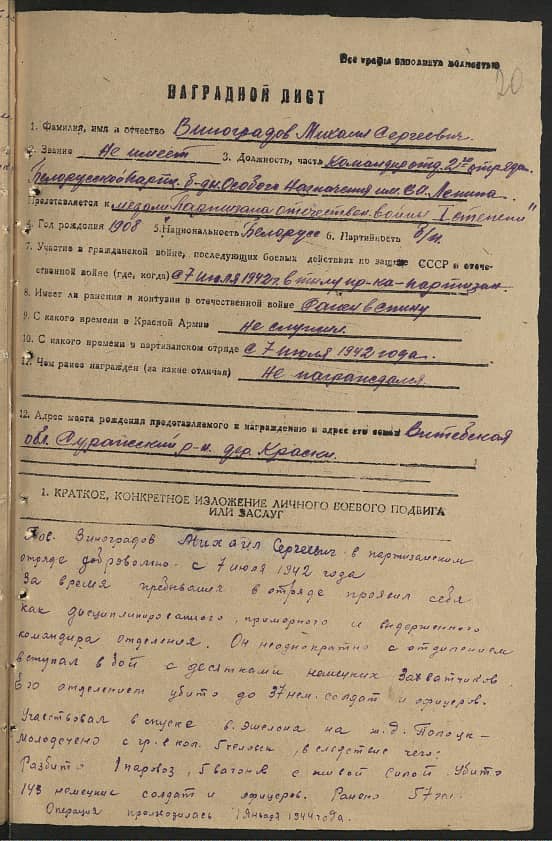 Все графы заполнять полностью
20
НАГРАДНОЙ ЛИСТ
1. Фамилия, имя и отчество Виноградов Михаил Сергеевич.
2. Звание Не имеет 3. Должность, часть Командир отд. 2го отряда
Белорусской парти. б-ды Особого Назначения им. В.И. Ленина
Представляется к медали Партизана отечествен. войны I степени"
4. Год рождения 1908 5. Национальность Белорусс 6. Партийность б/п.
7. Участие в гражданской войне, последующих боевых действиях по защите СССР и отече-
ственной войне (где, когда) С 7 июля 1942 г. в тылу пр-ка-партизан
8. Имеет ли ранения и контузии в отечественной войне Ранен в спину
9. С какого времени в Красной Армии Не служил.
10. С какого времени в партизанском отряде С 7 июля 1942 года.
11. Чем ранее награжден (за какие отличия) Не награждался.
12. Адрес места рождения представляемого к награждению и адрес его семьи Витебская
обл. Суражский р-н. дер. Краски.
1. КРАТКОЕ, КОНКРЕТНОЕ ИЗЛОЖЕНИЕ ЛИЧНОГО БОЕВОГО ПОДВИГА
ИЛИ ЗАСЛУГ
Тов. Виноградов Михаил Сергеевич в партизанском
отряде добровольно с 7 июля 1942 года
За время пребывания в отряде проявил себя
как дисциплинированного, примерного и выдержанного
командира отделения. Он неоднократно с отделением
вступал в бой с десятками немецких захватчиков.
Его отделением убито до 37 нем. солдат и офицеров.
Участвовал в спуске в. эшелона на ж.д. Полоцк-
Молодечно с гр. в кол. 5 человек, в следствие чего:
Разбито 1 паровоз, 5 вагонов с живой силой. Убито
143 немецких солдат и офицеров. Ранено 57
Операция происходилась 1 января 1944 года.